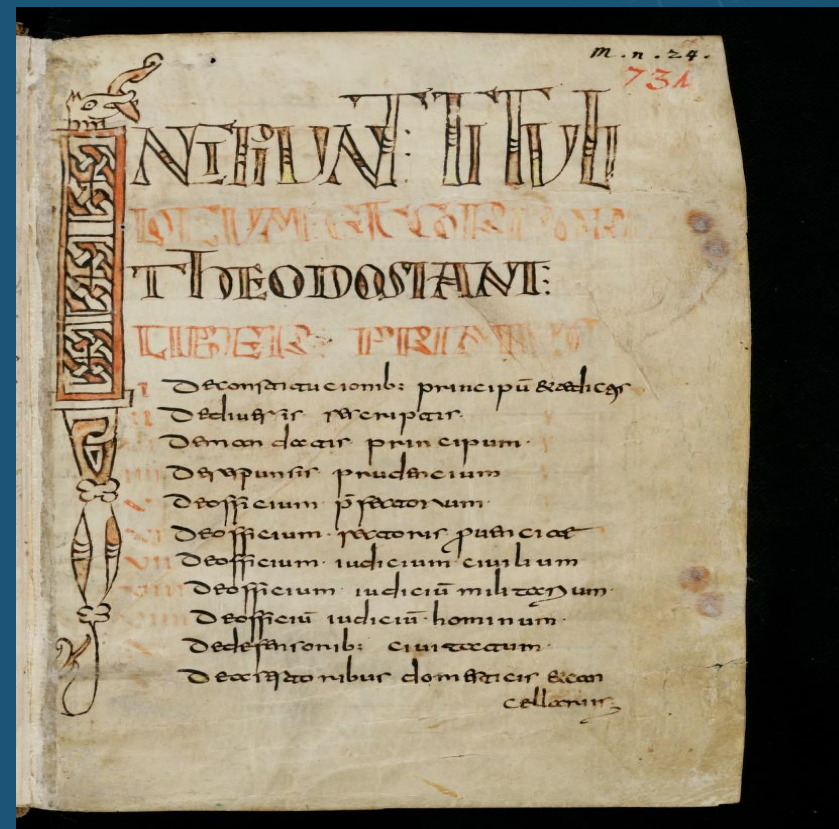 m. n. 24.
731
INCIPIUNT: TITULI
CORPORE
THEODOSIANI:
LIBER PRIMUS
I Deconstitucionib: principū & edictis
II Dediuersis rescriptis
Demandatis principum
prudencium
V Deofficium p̄fectorum
VI Deofficium rectoris
VII Deofficium iudicium ciuilium
VIII Deofficium iudiciū militarium
VIIII Deofficiū iudiciū hominum
Dedefensorib: ciuitatum
domesticis & can
cellariis